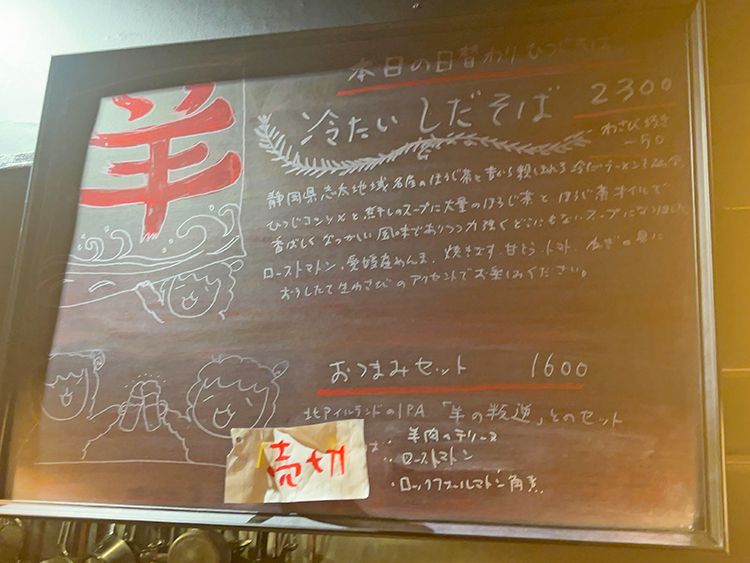 羊
本日の日替わりひつじそば
冷たいしだそば 2300
わさび抜き
-50
静岡県志太地域名産のほうじ茶と昔から親しまれる冷たいラーメンを
ひつじコンソメと煮干しのスープに大量のほうじ茶とほうじ茶オイルで
香ばしくなつかしい風味でありつつ力強くどこにもないスープになりました
ローストマトン、愛媛産めんま、焼きなす、甘とう、トマト、ねぎの具に
おろしたて生わさびのアクセントでお楽しみください。
おつまみセット 1600
北アイルランドのIPA「羊の叛逆」とのセット
・羊肉のテリーヌ
・ローストマトン
・ロックフォールマトン角煮
売切